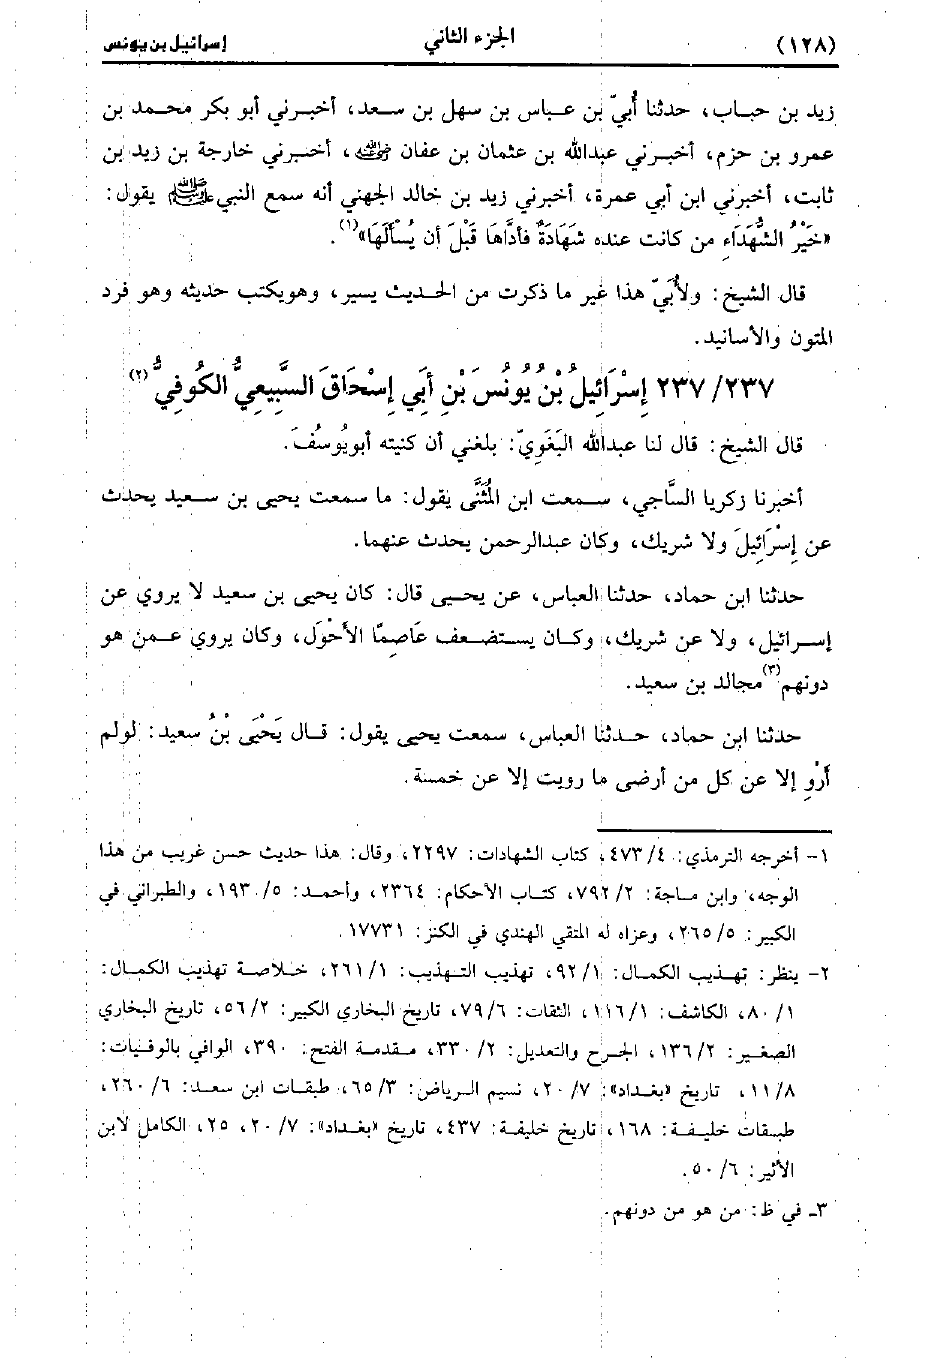 (١٢٨) الجزء الثاني إسرائيل بن يونس
زيد بن حباب، حدثنا أُبيّ بن عباس بن سهل بن سعد، أخبرني أبو بكر محمد بن
عمرو بن حزم، أخبرني عبدالله بن عثمان بن عفان رضي الله عنه، أخبرني خارجة بن زيد بن
ثابت، أخبرني ابن أبي عمرة، أخبرني زيد بن خالد الجهني أنه سمع النبي ﷺ يقول:
«خَيْرُ الشُّهَدَاءِ من كانت عنده شَهَادَةٌ فأدَّاهَا قَبْلَ أن يُسألَهَا»(١).
قال الشيخ: ولأُبَيّ هذا غير ما ذكرت من الحديث يسير، وهويكتب حديثه وهو فرد
المتون والأسانيد.
٢٣٧/ ٢٣٧ إِسْرَائِيلُ بْنُ يُونُسَ بْنِ أَبِي إِسْحَاقَ السَّبِيعِيُّ الكُوفِيُّ(٢)
قال الشيخ: قال لنا عبدالله البَغَوِيّ: بلغني أن كنيته أبويُوسُفَ.
أخبرنا زكريا السَّاجي، سمعت ابن المُثَنَّى يقول: ما سمعت يحيى بن سعيد يحدث
عن إِسْرَائِيلَ ولا شريك، وكان عبدالرحمن يحدث عنهما.
حدثنا ابن حماد، حدثنا العباس، عن يحيى قال: كان يحيى بن سعيد لا يروي عن
إسرائيل، ولا عن شريك، وكان يستضعف عَاصِمًا الأحْوَل، وكان يروي عمن هو
دونهم(٣) مجالد بن سعيد.
حدثنا ابن حماد، حدثنا العباس، سمعت يحيى يقول: قال يَحْيَى بْنُ سعيد: لولم
أَرْوِ إلا عن كل من أرضى ما رويت إلا عن خمسة.
١- أخرجه الترمذي: ٤/ ٤٧٣، كتاب الشهادات: ٢٢٩٧، وقال: هذا حديث حسن غريب من هذا
الوجه، وابن ماجة: ٢/ ٧٩٢، كتاب الأحكام: ٢٣٦٤، وأحمد: ٥/ ١٩٣، والطبراني في
الكبير: ٥/ ٢٦٥، وعزاه له المتقي الهندي في الكنز: ١٧٧٣١.
٢- ينظر: تهذيب الكمال: ١/ ٩٢، تهذيب التهذيب: ١/ ٢٦١، خلاصة تهذيب الكمال:
١/ ٨٠، الكاشف: ١/ ١١٦، الثقات: ٦/ ٧٩، تاريخ البخاري الكبير: ٢/ ٥٦، تاريخ البخاري
الصغير: ٢/ ١٣٦، الجرح والتعديل: ٢/ ٣٣٠، مقدمة الفتح: ٣٩٠، الوافي بالوفيات:
٨/ ١١، تاريخ «بغداد»: ٧/ ٢٠، نسيم الرياض: ٣/ ٦٥، طبقات ابن سعد: ٦/ ٢٦٠،
طبقات خليفة: ١٦٨، تاريخ خليفة: ٤٣٧، تاريخ «بغداد»: ٧/ ٢٠، ٢٥، الكامل لابن
الأثير: ٦/ ٥٠.
٣- في ظ: من هو من دونهم.